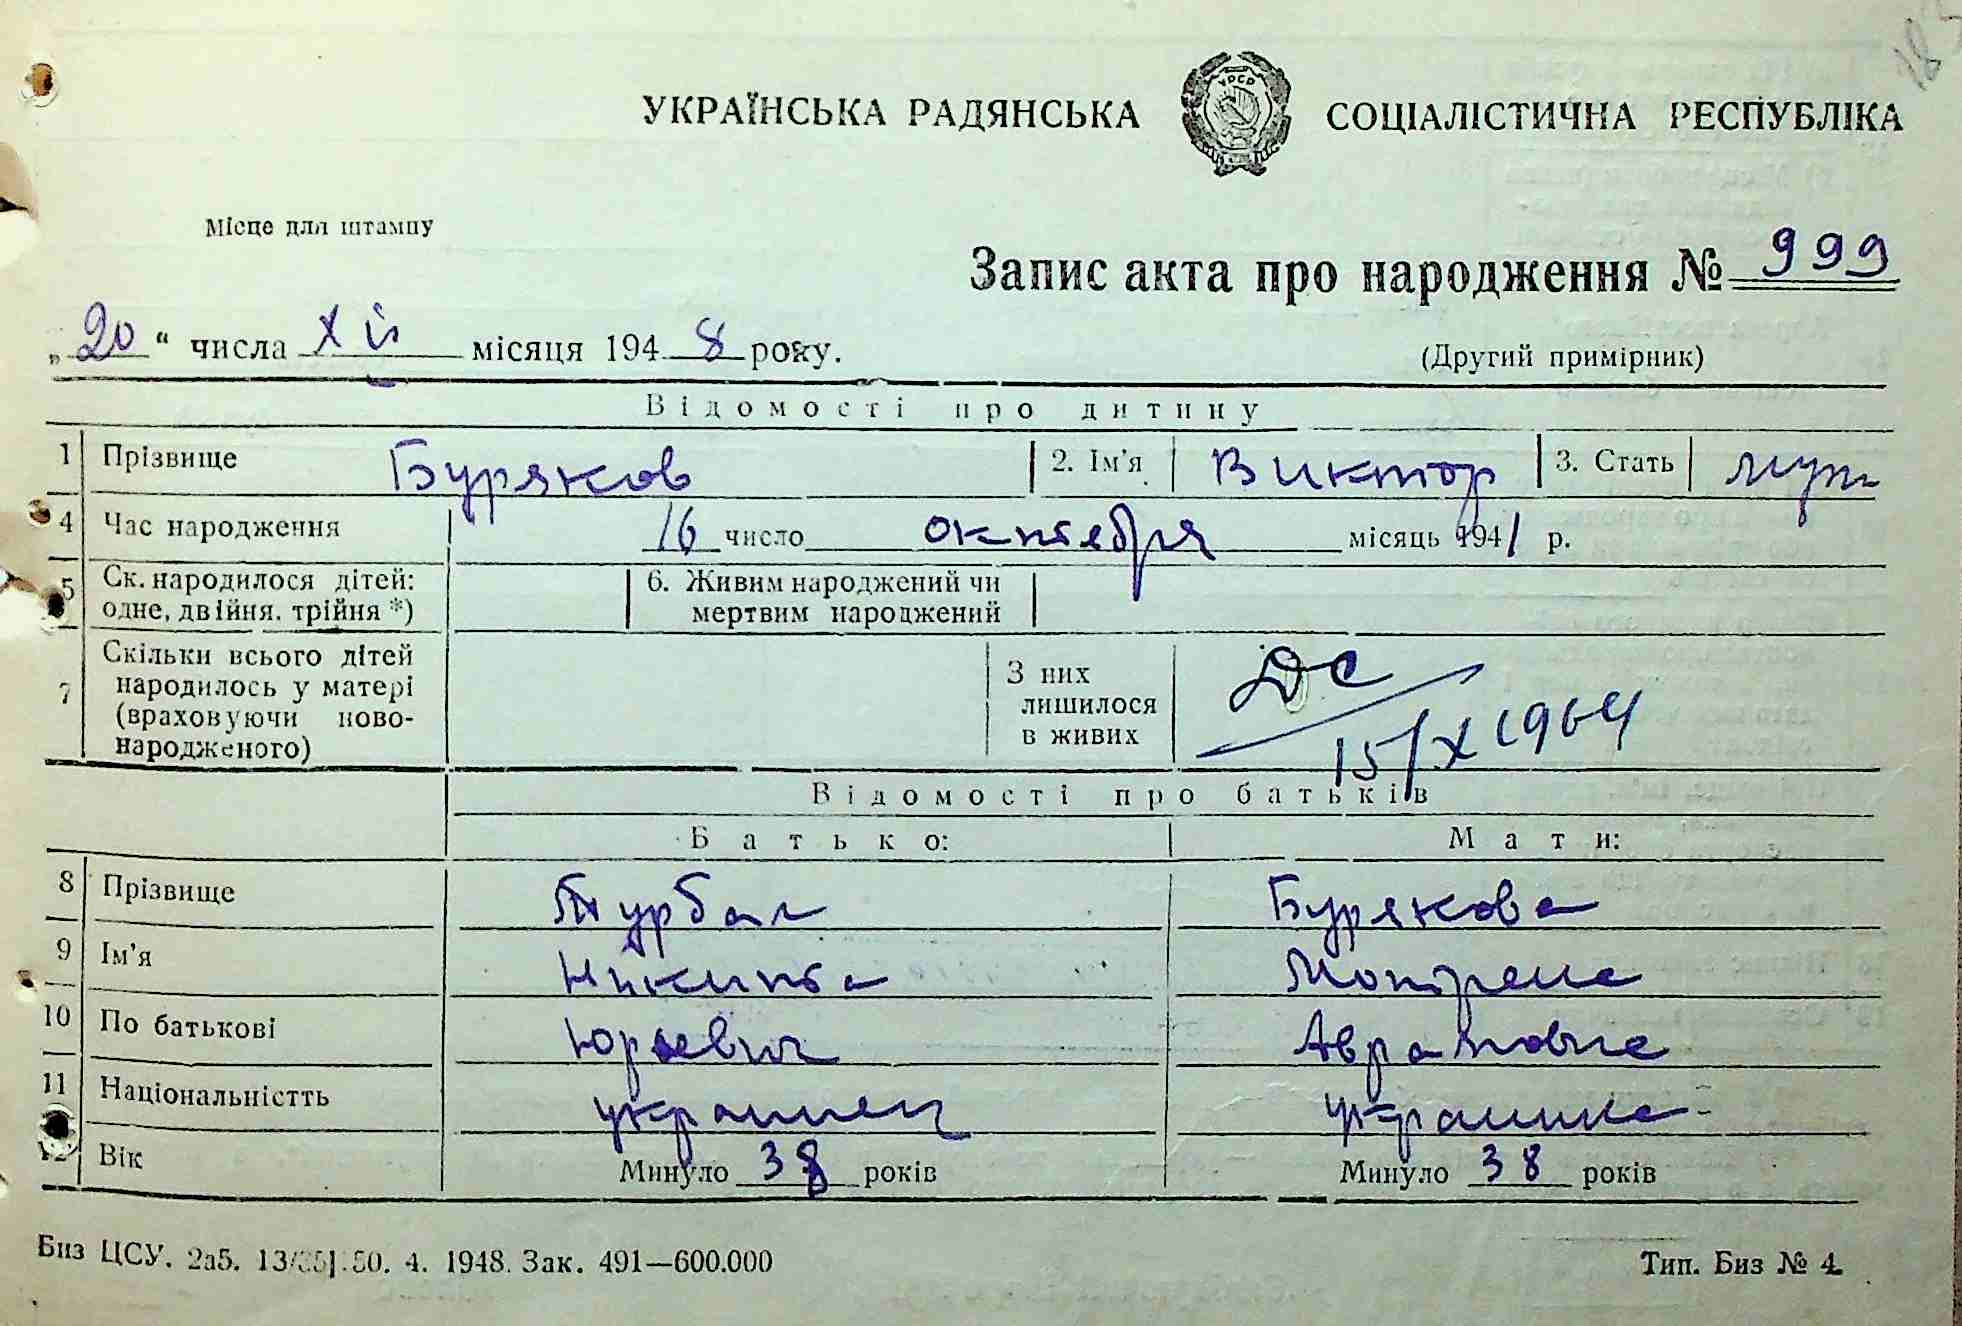 УКРАЇНСЬКА РАДЯНСЬКА СОЦІАЛІСТИЧНА РЕСПУБЛІКА
УРСР
Місце для штампу
Запис акта про народження № 999
„20“ числа XII місяця 1948 року.
(Другий примірник)
Відомості про дитину
1 Прізвище Буряков 2. Ім'я Виктор 3. Стать муж
4 Час народження 16 число октября місяць 1941 р.
5 Ск. народилося дітей: одне, двійня, трійня *) 6. Живим народжений чи мертвим народжений
7 Скільки всього дітей народилось у матері (враховуючи новонародженого) З них лишилося в живих
ДС
15/X 1964
Відомості про батьків
Батько: Мати:
8 Прізвище Турбал Бурякова
9 Ім'я Никита Мотрена
10 По батькові Юрьевич Аврамовна
11 Національністть украинец украинка
12 Вік Минуло 38 років Минуло 38 років
Биз ЦСУ. 2а5. 50. 4. 1948. Зак. 491—600.000 Тип. Биз № 4.